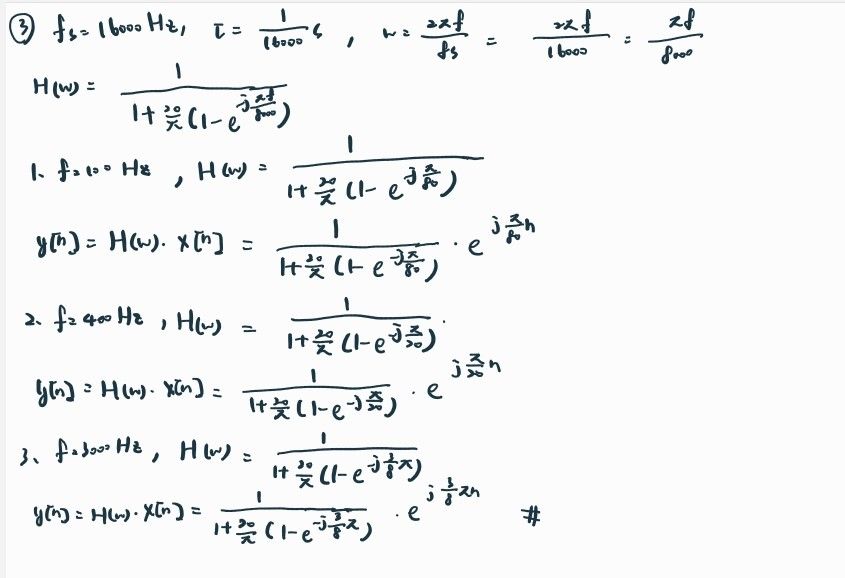 ③ fs = 16000 Hz, τ = 1/16000 s, w = 2πf/fs = 2πf/16000 = πf/8000
H(w) = 1/(1+20/π(1-e^(-jπf/8000)))
1. f=100 Hz, H(w) = 1/(1+20/π(1-e^(-jπ/80)))
y[n] = H(w)·x[n] = 1/(1+20/π(1-e^(-jπ/80))) · e^(jπ/80 n)
2. f=400 Hz, H(w) = 1/(1+20/π(1-e^(-jπ/20)))·
y[n] = H(w)·x[n] = 1/(1+20/π(1-e^(-jπ/20))) · e^(jπ/20 n)
3. f=3000 Hz, H(w) = 1/(1+20/π(1-e^(-j3/8π)))
y[n] = H(w)·x[n] = 1/(1+20/π(1-e^(-j3/8π))) · e^(j3/8πn) #